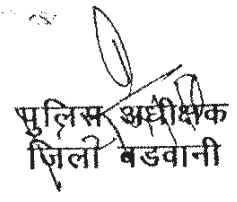 पुलिस अधीक्षक
जिला बडवानी